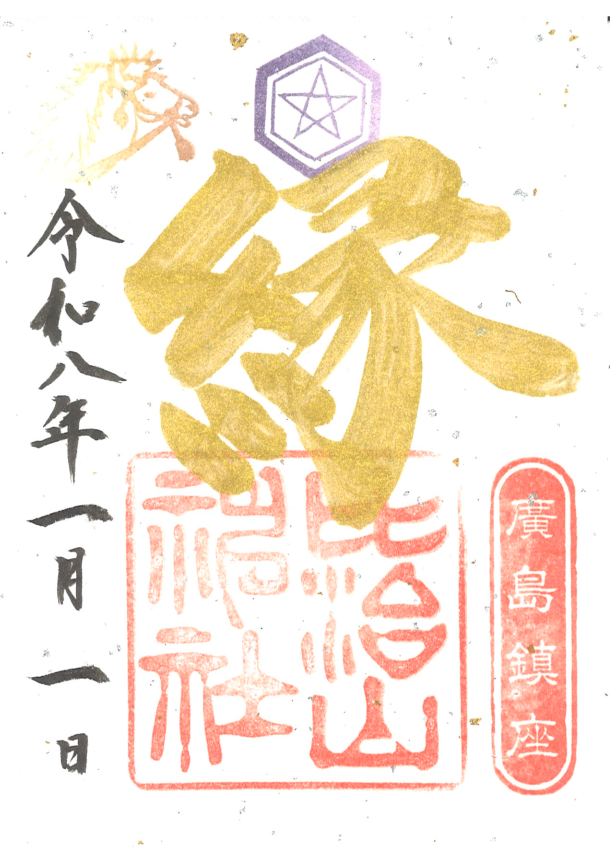 廣島鎮座
縁
比治山
神社
令和八年一月一日